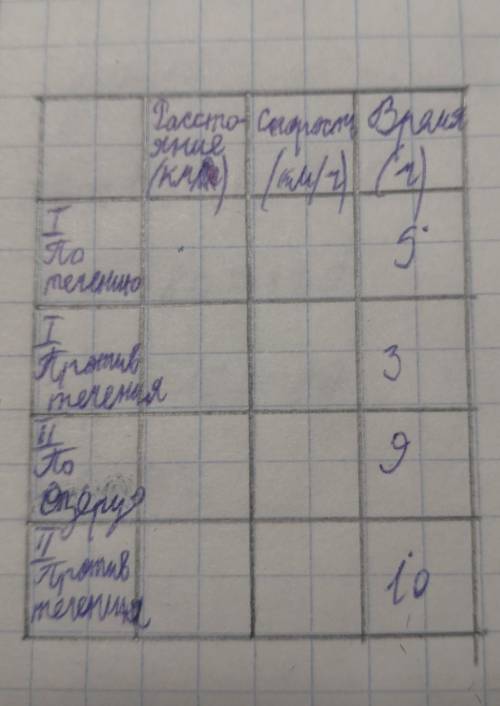 Рассто-
яние
(км)
Скорость
(км/ч)
Время
(ч)
I
По
течению
5
I
Против
течения
3
II
По
озеру
9
II
Против
течения
10